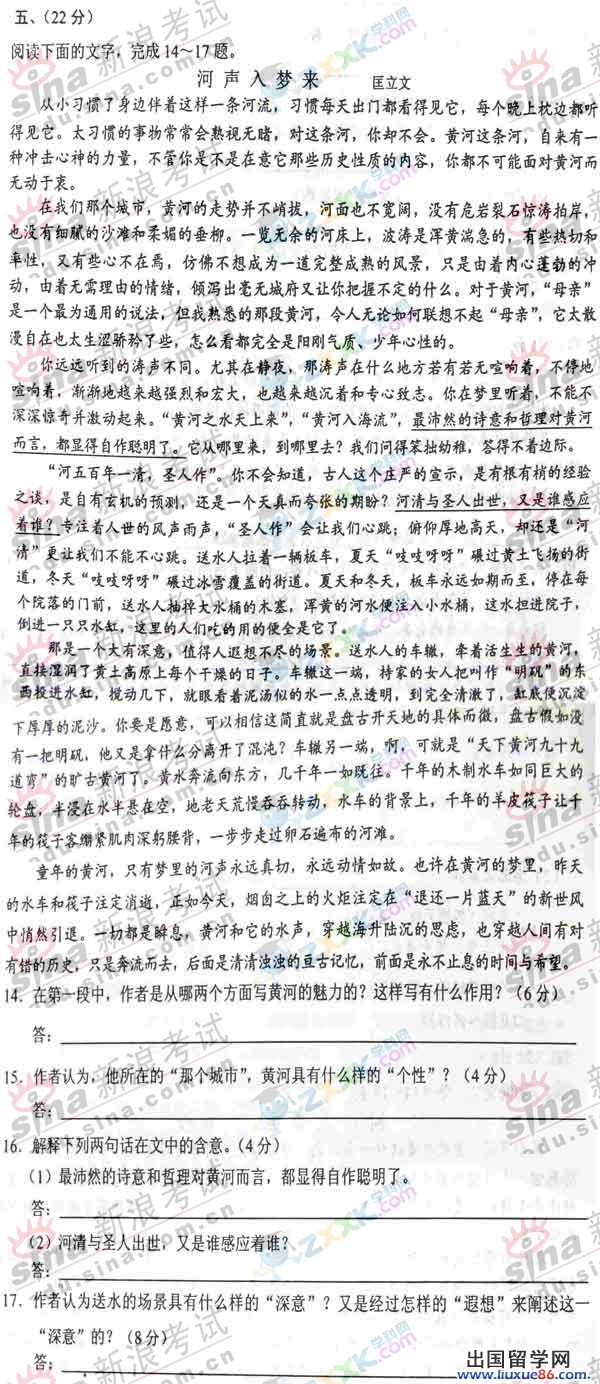 五、（22 分）
阅读下面的文字，完成14～17题。
河 声 入 梦 来 匡立文
从小习惯了身边伴着这样一条河流，习惯每天出门都看得见它，每个晚上枕边都听
得见它。太习惯的事物常常会熟视无睹，对这条河，你却不会。黄河这条河，自来有一
种冲击心神的力量，不管你是不是在意它那些历史性质的内容，你都不可能面对黄河而
无动于衷。
在我们那个城市，黄河的走势并不峭拔，河面也不宽阔，没有危岩裂石惊涛拍岸，
也没有细腻的沙滩和柔媚的垂柳。一览无余的河床上，波涛是浑黄湍急的，有些热切和
率性，又有些心不在焉，仿佛不想成为一道完整成熟的风景，只是由着内心蓬勃的冲
动，由着无需理由的情绪，倾泻出毫无城府又让你把握不定的什么。对于黄河，“母亲”
是一个最为通用的说法，但我熟悉的那段黄河，令人无论如何联想不起“母亲”，它太散
漫自在也太生涩骄矜了些，怎么看都完全是阳刚气质、少年心性的。
你远远听到的涛声不同。尤其在静夜，那涛声在什么地方若有若无喧响着，不停地
喧响着，渐渐地越来越强烈和宏大，也越来越沉着和专心致志。你在梦里听着，不能不
深深惊奇并激动起来。“黄河之水天上来”，“黄河入海流”，最沛然的诗意和哲理对黄河
而言，都显得自作聪明了。它从哪里来，到哪里去？我们问得笨拙幼稚，答得不着边际。
“河五百年一清，圣人作”。你不会知道，古人这个庄严的宣示，是有根有梢的经验
之谈，是自有玄机的预测，还是一个天真而夸张的期盼？河清与圣人出世，又是谁感应
着谁？专注着人世的风声雨声，“圣人作”会让我们心跳；俯仰厚地高天，却还是“河
清”更让我们不能不心跳。送水人拉着一辆板车，夏天“吱吱呀呀”碾过黄土飞扬的街
道，冬天“吱吱呀呀”碾过冰雪覆盖的街道。夏天和冬天，板车永远如期而至，停在每
个院落的门前，送水人抽掉大水桶的木塞，浑黄的河水便注入小水桶，这水担进院子，
倒进一只只水缸，这里的人们吃的用的便全是它了。
那是一个大有深意，值得人遐想不尽的场景。送水人的车辙，牵着活生生的黄河，
直接湿润了黄土高原上每个干燥的日子。车辙这一端，持家的女人把叫作“明矾”的东
西投进水缸，搅动几下，就眼看着泥汤似的水一点点透明，到完全清澈了，缸底便沉淀
下厚厚的泥沙。你要是愿意，可以相信这简直就是盘古开天地的具体而微，盘古假如没
有一把明矾，他又是拿什么分离开了混沌？车辙另一端，啊，可就是“天下黄河九十九
道弯”的旷古黄河了。黄水奔流向东方，几千年一如既往。千年的木制水车如同巨大的
轮盘，半浸在水半悬在空，地老天荒慢吞吞转动，水车的背景上，千年的羊皮筏子让千
年的筏子客绷紧肌肉深躬腰背，一步步走过卵石遍布的河滩。
童年的黄河，只有梦里的河声永远真切，永远动情如故。也许在黄河的梦里，昨天
的水车和筏子注定消逝，正如今天，烟囱之上的火炬注定在“退还一片蓝天”的新世风
中悄然引退。一切都是瞬息，黄河和它的水声，穿越海升陆沉的思虑，也穿越人间有对
有错的历史，只是奔流而去，后面是清清浊浊的亘古记忆，前面是永不止息的时间与希望。
14．在第一段中，作者是从哪两个方面写黄河的魅力的？这样写有什么作用？（6 分）
答：
15．作者认为，他所在的“那个城市”，黄河具有什么样的“个性”？（4 分）
答：
16．解释下列两句话在文中的含意。（4 分）
（1）最沛然的诗意和哲理对黄河而言，都显得自作聪明了。
答：
（2）河清与圣人出世，又是谁感应着谁？
答：
17．作者认为送水的场景具有什么样的“深意”？又是经过怎样的“遐想”来阐述这一
“深意”的？（8 分）
答：
出国留学网
www.liuxue86.com